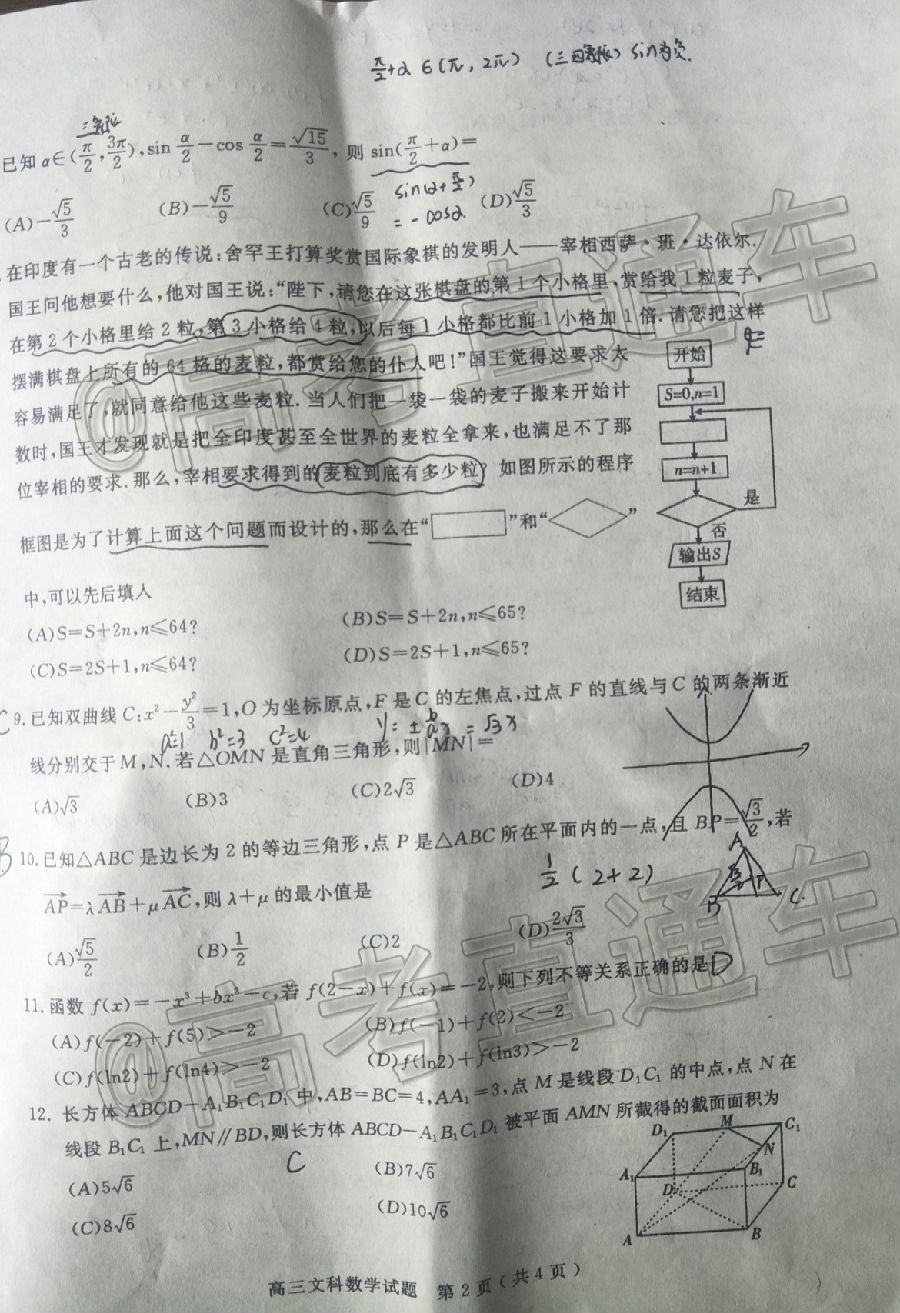 π/2+α∈(π,2π) (三四象限) sin为负.
已知α∈(π/2,3π/2),sin α/2−cos α/2=√15/3,则sin(π/2+α)=
(A)−√5/3 (B)−√5/9 (C)√5/9 (D)√5/3
sin(α+π/2)
=−cosα
在印度有一个古老的传说:舍罕王打算奖赏国际象棋的发明人——宰相西萨·班·达依尔.
国王问他想要什么,他对国王说:“陛下,请您在这张棋盘的第1个小格里,赏给我1粒麦子,
在第2个小格里给2粒,第3小格给4粒,以后每1小格都比前1小格加1倍.请您把这样
摆满棋盘上所有的64格的麦粒,都赏给您的仆人吧!”国王觉得这要求太
容易满足了,就同意给他这些麦粒.当人们把一袋一袋的麦子搬来开始计
数时,国王才发现就是把全印度甚至全世界的麦粒全拿来,也满足不了那
位宰相的要求.那么,宰相要求得到的麦粒到底有多少粒?如图所示的程序
框图是为了计算上面这个问题而设计的,那么在“ ”和“ ”
中,可以先后填入
开始
S=0,n=1
n=n+1
是
否
输出S
结束
(A)S=S+2n,n≤64? (B)S=S+2n,n≤65?
(C)S=2S+1,n≤64? (D)S=2S+1,n≤65?
C 9.已知双曲线C:x²−y²/3=1,O为坐标原点,F是C的左焦点,过点F的直线与C的两条渐近
a²=1 b²=3 c²=4 y=±b/a x=√3x
线分别交于M,N.若△OMN是直角三角形,则|MN|=
(A)√3 (B)3 (C)2√3 (D)4
B 10.已知△ABC是边长为2的等边三角形,点P是△ABC所在平面内的一点,且BP=√3/2,若
AP=λAB+μAC,则λ+μ的最小值是
1/2(2+2)
A
B P C
(A)√5/2 (B)1/2 (C)2 (D)2√3/3
11.函数f(x)=−x³+bx²−c,若f(2−x)+f(x)=−2,则下列不等关系正确的是D
(A)f(−2)+f(5)>−2 (B)f(−1)+f(2)<−2
(C)f(ln2)+f(ln4)>−2 (D)f(ln2)+f(ln3)>−2
12.长方体ABCD−A₁B₁C₁D₁中,AB=BC=4,AA₁=3,点M是线段D₁C₁的中点,点N在
线段B₁C₁上,MN∥BD,则长方体ABCD−A₁B₁C₁D₁被平面AMN所截得的截面面积为
C
(A)5√6 (B)7√6
(C)8√6 (D)10√6
D₁ M C₁
N
A₁ B₁
D C
A B
高三文科数学试题 第2页(共4页)
@高考直通车
@高考直通车